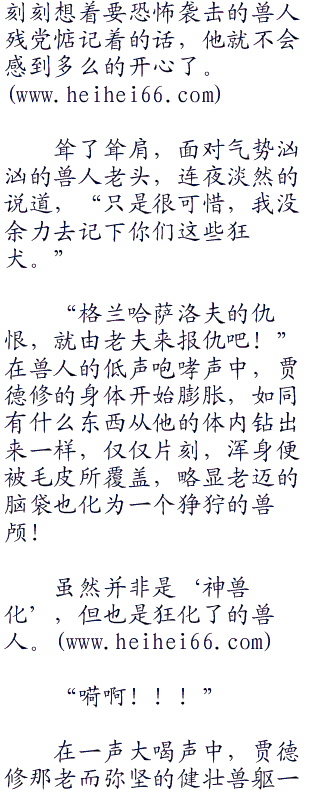 刻刻想着要恐怖袭击的兽人
残党惦记着的话，他就不会
感到多么的开心了。
(www.heihei66.com)
耸了耸肩，面对气势汹
汹的兽人老头，连夜淡然的
说道，“只是很可惜，我没
余力去记下你们这些狂
犬。”
“格兰哈萨洛夫的仇
恨，就由老夫来报仇吧！”
在兽人的低声咆哮声中，贾
德修的身体开始膨胀，如同
有什么东西从他的体内钻出
来一样，仅仅片刻，浑身便
被毛皮所覆盖，略显老迈的
脑袋也化为一个狰狞的兽
颅！
虽然并非是‘神兽
化’，但也是狂化了的兽
人。(www.heihei66.com)
“嗬啊！！！”
在一声大喝声中，贾德
修那老而弥坚的健壮兽躯一